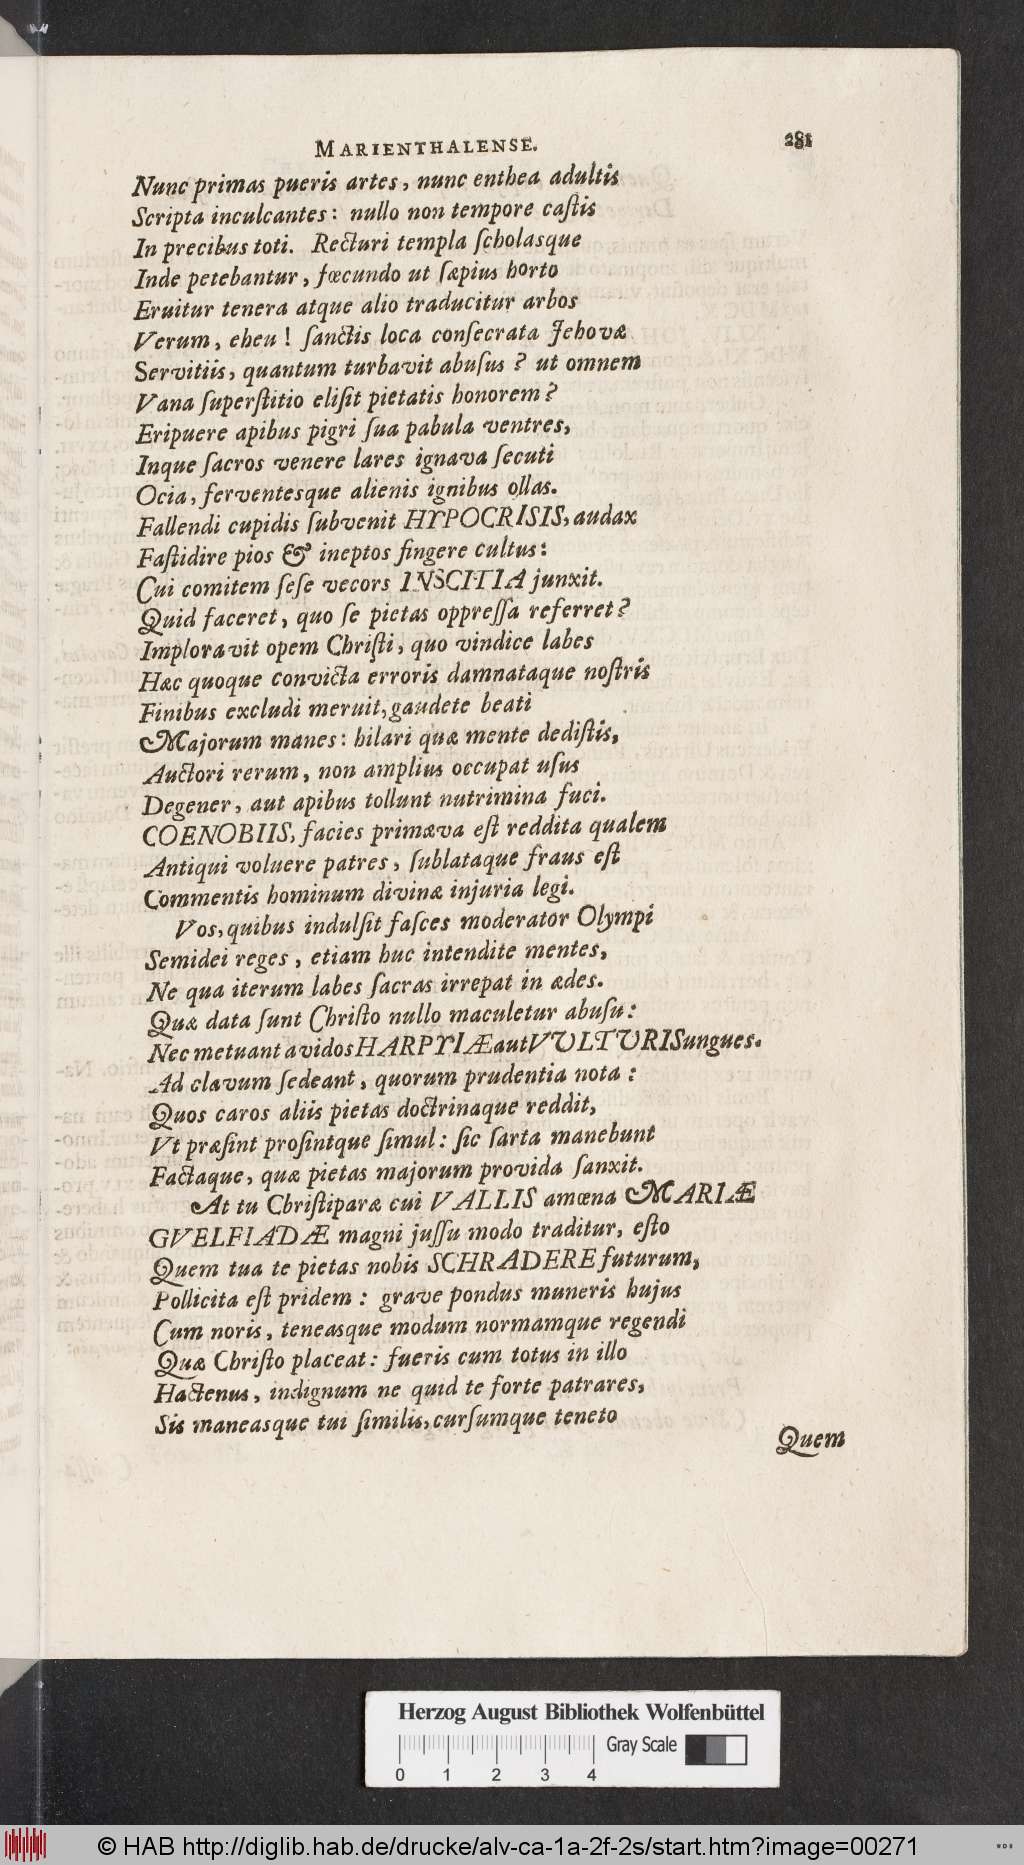 MARIENTHALENSE. 281
Nunc primas pueris artes, nunc enthea adultis
Scripta inculcantes: nullo non tempore caſtis
In precibus toti. Recturi templa ſcholasque
Inde petebantur, fœcundo ut ſæpius horto
Eruitur tenera atque alio traducitur arbos
Verum, eheu! ſanctis loca conſecrata Jehovæ
Servitiis, quantum turbavit abuſus? ut omnem
Vana ſuperſtitio eliſit pietatis honorem?
Eripuere apibus pigri ſua pabula ventres,
Inque ſacros venere lares ignava ſecuti
Ocia, ferventesque alienis ignibus ollas.
Fallendi cupidis ſubvenit HYPOCRISIS, audax
Faſtidire pios & ineptos fingere cultus:
Cui comitem ſeſe vecors INSCITIA junxit.
Quid faceret, quo ſe pietas oppreſſa referret?
Imploravit opem Chriſti, quo vindice labes
Hæc quoque convicta erroris damnataque noſtris
Finibus excludi meruit, gaudete beati
Majorum manes: hilari quæ mente dediſtis,
Auctori rerum, non amplius occupat uſus
Degener, aut apibus tollunt nutrimina fuci.
COENOBIIS, facies primæva eſt reddita qualem
Antiqui voluere patres, ſublataque fraus eſt
Commentis hominum divinæ injuria legi.
Vos, quibus indulſit faſces moderator Olympi
Semidei reges, etiam huc intendite mentes,
Ne qua iterum labes ſacras irrepat in ædes.
Quæ data ſunt Chriſto nullo maculetur abuſu:
Nec metuant avidos HARPYIÆ aut VULTURIS ungues.
Ad clavum ſedeant, quorum prudentia nota:
Quos caros aliis pietas doctrinaque reddit,
Vt præſint proſintque ſimul: ſic ſarta manebunt
Factaque, quæ pietas majorum provida ſanxit.
At tu Chriſtiparæ cui VALLIS amœna MARIÆ
GVELFIADÆ magni juſſu modo traditur, eſto
Quem tua te pietas nobis SCHRADERE futurum,
Pollicita eſt pridem: grave pondus muneris hujus
Cum noris, teneasque modum normamque regendi
Quæ Chriſto placeat: fueris cum totus in illo
Hactenus, indignum ne quid te forte patrares,
Sis maneasque tui ſimilis, curſumque teneto
Quem
Herzog August Bibliothek Wolfenbüttel
Gray Scale
0 1 2 3 4
© HAB http://diglib.hab.de/drucke/alv-ca-1a-2f-2s/start.htm?image=00271